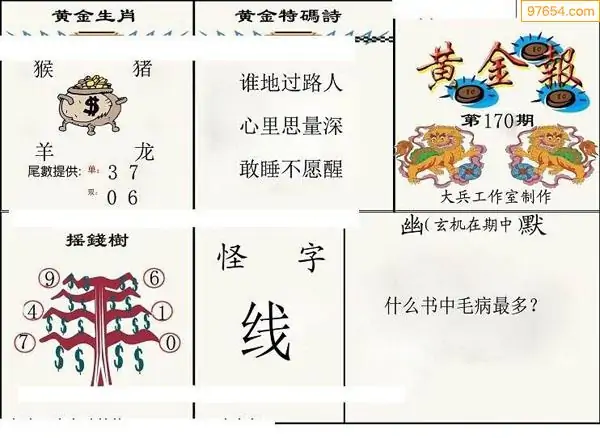 97654.com
黄金生肖
猴 猪
$
羊 龙
尾數提供: 单: 3 7
双: 0 6
黄金特碼詩
谁地过路人
心里思量深
敢睡不愿醒
黄金報
第170期
大兵工作室制作
摇錢樹
9 6
4 1
7 0
怪 字
线
幽(玄机在期中)默
什么书中毛病最多?